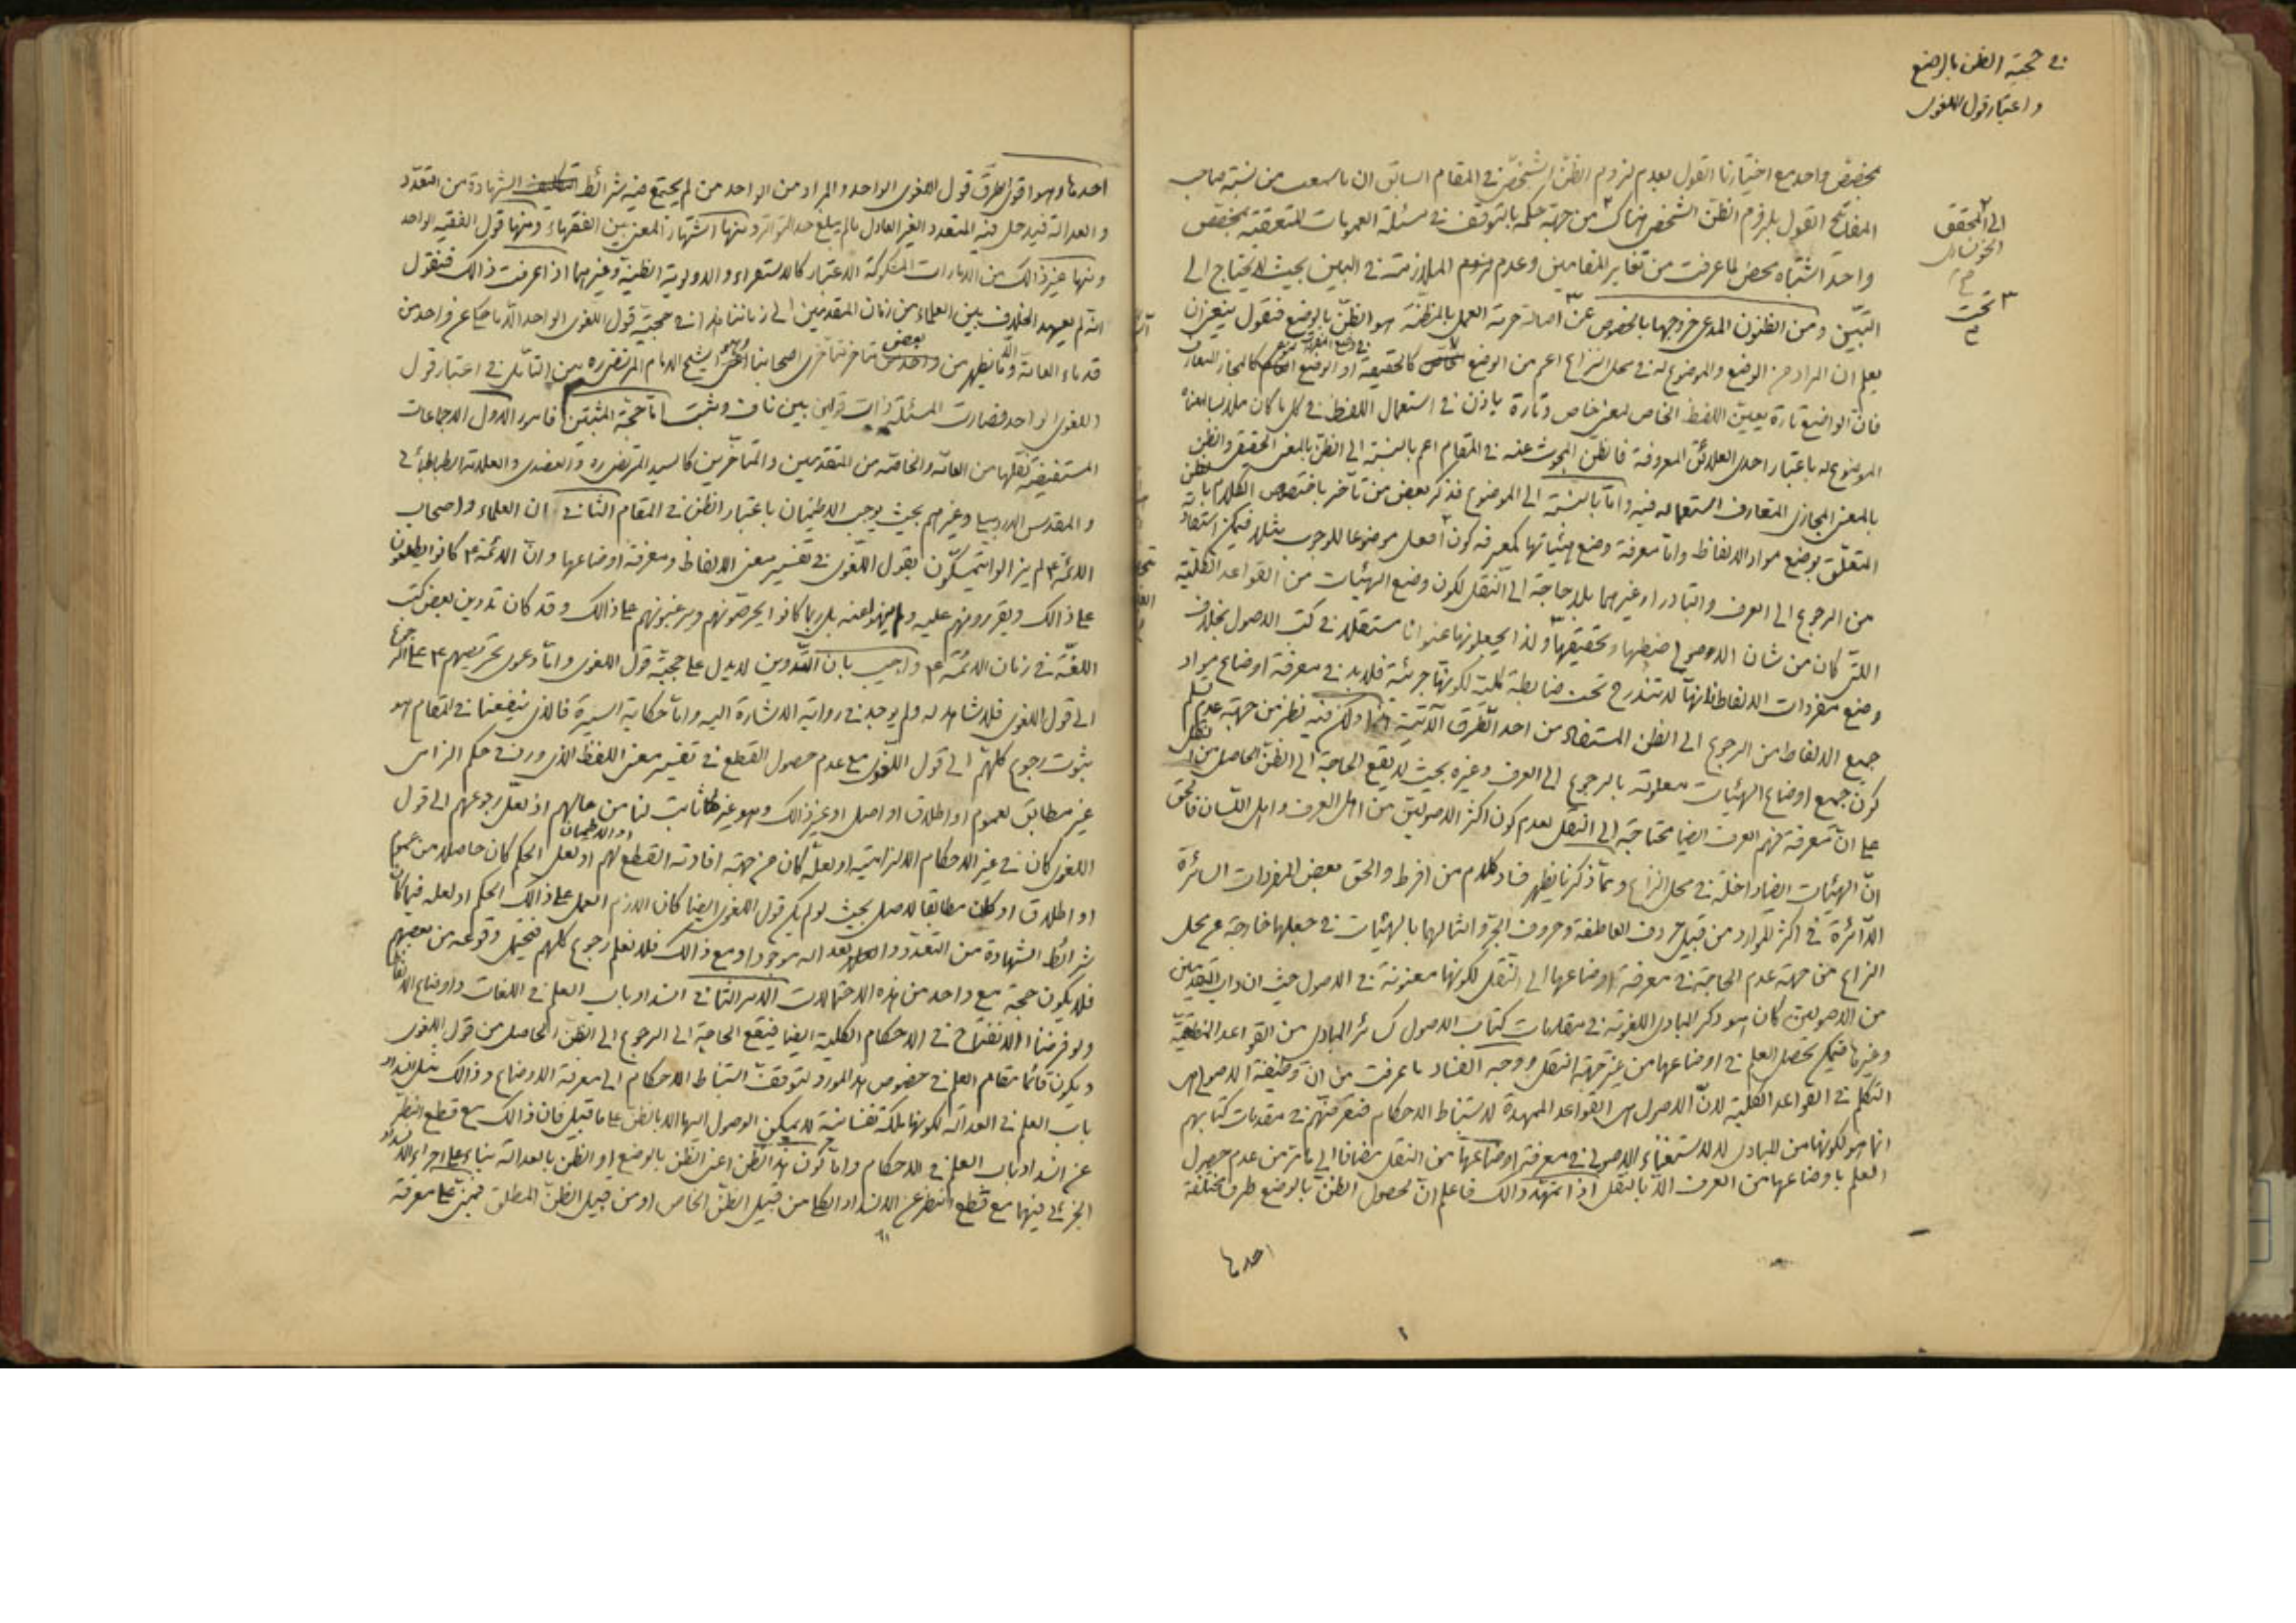 في حجية الظن بالوضع
واعتبار قول اللغوي
بمخصص واحد مع اختيارنا القول بعدم لزوم الظن الشخصي في المقام السابق ان ما سمعت من نسبة صاحب
المفاتيح القول بلزوم الظن الشخصي هناك من جهة حكمه بالتوقف في مسئلة العمومات المتعقبة بمخصص
واحد اشتباه محض لما عرفت من تغاير المقامين وعدم لزوم الملازمة في البين بحيث لا يحتاج الى
التبين ومن الظنون المدعى خروجها بالخصوص عن اصالة حرمة العمل بالمظنة هو الظن بالوضع فنقول ينبغي ان
يعلم ان المراد من الوضع والموضوع له في محل النزاع اعم من الوضع كالحقيقة او الوضع كالمجاز المتعارف
فان الواضع تارة يعين اللفظ الخاص لمعنى خاص وتارة ياذن في استعمال اللفظ في كل ما كان ملابسا لمعناه
الموضوع له باعتبار احدى العلائق المعروفة فالظن المبحوث عنه في المقام اعم بالنسبة الى الظن بالمعنى الحقيقي والظن
بالمعنى المجازي المتعارف استعماله فيه واما بالنسبة الى الموضوع فذكر بعض من تأخر باختصاص الكلام بالظن
المتعلق بوضع مواد الالفاظ واما معرفة وضع هيئاتها كمعرفة كون افعل موضوعا للوجوب مثلا فيمكن استفادته
من الرجوع الى العرف والتبادر او غيرهما بلا حاجة الى النقل لكون وضع الهيئات من القواعد الكلية
التي كان من شان الاصولي ضبطها وتحقيقها ولذا يجعلونها عنوانا مستقلا في كتب الاصول بخلاف
وضع مفردات الالفاظ فانها لا تندرج تحت ضابطة كلية لكونها جزئية فلا بد في معرفة اوضاع مواد
جميع الالفاظ من الرجوع الى الظن المستفاد من احد الطرق الآتية ولكن فيه نظر من جهة عدم تسلم
كون جميع اوضاع الهيئات معلومة بالرجوع الى العرف وغيره بحيث لا يقع الحاجة الى الظن الحاصل من النقل
على ان معرفة فهم العرف ايضا محتاجة الى النقل لعدم كون اكثر الاصوليين من اهل العرف واهل اللسان فالحق
ان الهيئات ايضا داخلة في محل النزاع ومما ذكرنا يظهر فساد كلام من افرط والحق بعض المفردات السائرة
الدائرة في اكثر الموارد من قبيل حروف العاطفة وحروف الجر وامثالهما بالهيئات في جعلها خارجة عن محل
النزاع من جهة عدم الحاجة في معرفة اوضاعها الى النقل لكونها معنونة في الاصول حيث ان داب القدمين
من الاصوليين كان هو ذكر المبادى اللغوية في مقدمات كتاب الاصول كسائر المبادى من القواعد المنطقية
وغيرها فيمكن تحصيل العلم في اوضاعها من غير جهة النقل ووجه الفساد ما عرفت من ان وظيفة الاصولي هي
التكلم في القواعد الكلية لان الاصول هي القواعد الممهدة لاستنباط الاحكام فتعرضهم في مقدمات كتابهم
انما هو لكونها من المبادى لا لاستغناء الاصولي في معرفة اوضاعها من النقل مضافا الى ما مر من عدم حصول
العلم باوضاعها من العرف الا بالنقل اذا تمهد ذالك فاعلم ان لحصول الظن بالوضع طرق مختلفة
احدها
الى المحقق
الخونساري
م
٣ تحت
م
احدها وهو اقوى الطرق قول اللغوي الواحد والمراد من الواحد من لم يجتمع فيه شرائط الشهادة من التعدد
والعدالة فيدخل فيه المتعدد الغير العادل ما لم يبلغ حد التواتر ومنها اشتهار المعنى بين الفقهاء ومنها قول الفقيه الواحد
ومنها غير ذالك من الامارات المشكوكة الاعتبار كالاستقراء والاولوية الظنية وغيرهما اذا عرفت ذالك فنقول
انه لم يعهد الخلاف بين العلماء من زمان المتقدمين الى زماننا هذا في حجية قول اللغوي الواحد الا ما حكي عن واحد من
قدماء العامة وما يظهر من بعض متاخر متأخري اصحابنا الشيخ الامام المرتضى ره من التأمل في اعتبار قول
اللغوي الواحد فصارت المسئلة ذات قولين بين ناف ومثبت اما حجة المثبتين فامور الاول الاجماعات
المستفيضة نقلها من العامة والخاصة من المتقدمين والمتأخرين كالسيد المرتضى ره والعضدي والعلامة الطباطبائي
والمقدس الاردبيلي وغيرهم بحيث يوجب الاطمينان باعتبار الظن في المقام الثاني ان العلماء واصحاب
الائمة ع لم يزالوا يتمسكون بقول اللغوي في تفسير معنى الالفاظ ومعرفة اوضاعها وان الائمة ع كانوا يطلعون
على ذالك ويقررونهم عليه ولم ينهوا عنه بل ربما كانوا يحرصونهم ويرغبونهم على ذالك وقد كان تدوين بعض كتب
اللغة في زمان الائمة ع واجيب بان التدوين لا يدل على حجية قول اللغوي واما دعوى تحريصهم ع على الرجوع
الى قول اللغوي فلا شاهد له ولم يوجد في رواية الاشارة اليه واما حكاية السيرة فالذي ينفعنا في المقام هو
ثبوت رجوع كلهم الى قول اللغوي مع عدم حصول القطع في تفسير معنى اللفظ الذي ورد في حكم الزامي
غير مطابق لعموم او اطلاق او اصل او غير ذالك وهو غير ثابت لنا من حالهم اذ لعل رجوعهم الى قول
اللغوي كان في غير الاحكام الالزامية او لعله كان من جهة افادته القطع لهم او الاطمينان او لعل الحكم كان حاصلا من عموم
او اطلاق او كان مطابقا لاصل بحيث لو لم يكن قول اللغوي ايضا كان اللازم العمل على ذالك الحكم او لعله فيما كان
شرائط الشهادة من التعدد والعدالة موجودا ومع ذالك فلا نعلم رجوع كلهم فيحتمل وقوعه من بعضهم
فلا يكون حجة مع واحد من هذه الاحتمالات الامر الثاني انسداد باب العلم في اللغات واوضاع الالفاظ
ولو فرضنا الانفتاح في الاحكام الكلية ايضا فيقع الحاجة الى الرجوع الى الظن الحاصل من قول اللغوي
ويكون قائما مقام العلم في خصوص هذا المورد لتوقف استنباط الاحكام الى معرفة الاوضاع وذالك مثل انسداد
باب العلم في العدالة لكونها ملكة نفسانية لا يمكن الوصول اليها الا بالظن على ما قيل فان ذالك مع قطع النظر
عن انسداد باب العلم في الاحكام واما كون هذا الظن اعني الظن بالوضع او الظن بالعدالة بناء على اجراء الانسداد
الجزئي فيهما مع قطع النظر عن الانسداد الكلي من قبيل الظن الخاص او من قبيل الظن المطلق فمبني على معرفة